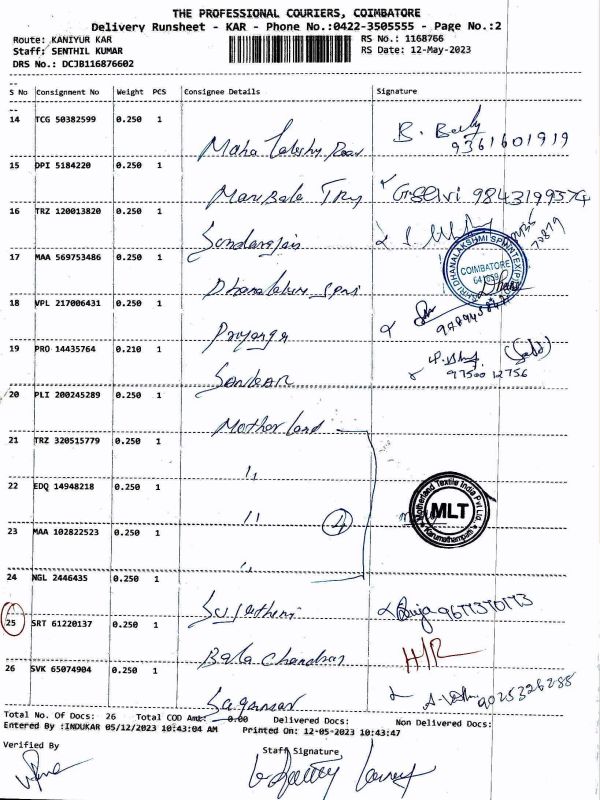 THE PROFESSIONAL COURIERS, COIMBATORE
Delivery Runsheet - KAR - Phone No.:0422-3505555 - Page No.:2
Route: KANIYUR KAR RS No.: 1168766
Staff: SENTHIL KUMAR RS Date: 12-May-2023
DRS No.: DCJB116876602
S No Consignment No Weight PCS Consignee Details Signature
14 TCG 50382599 0.250 1
9361601919
15 DPI 5184220 0.250 1
G.Selvi 9843199374
16 TRZ 120013820 0.250 1
17 MAA 569753486 0.250 1
COIMBATORE
18 VPL 217006431 0.250 1
Priyanga
19 PRO 14435764 0.210 1
97500 12756
Sankar
20 PLI 200245289 0.250 1
Motherland
21 TRZ 320515779 0.250 1
"
22 EDQ 14948218 0.250 1
Motherland Textile India Pvt Ltd
MLT
Karumathampatti
" 4
23 MAA 102822523 0.250 1
"
24 NGL 2446435 0.250 1
9677370173
25 SRT 61220137 0.250 1
Bala Chandran H/R
26 SVK 65074904 0.250 1
9025326285
Total No. Of Docs: 26 Total COD Amt: 0.00 Delivered Docs: Non Delivered Docs:
Entered By :INDUKAR 05/12/2023 10:43:04 AM Printed On: 12-05-2023 10:43:47
Verified By Staff Signature